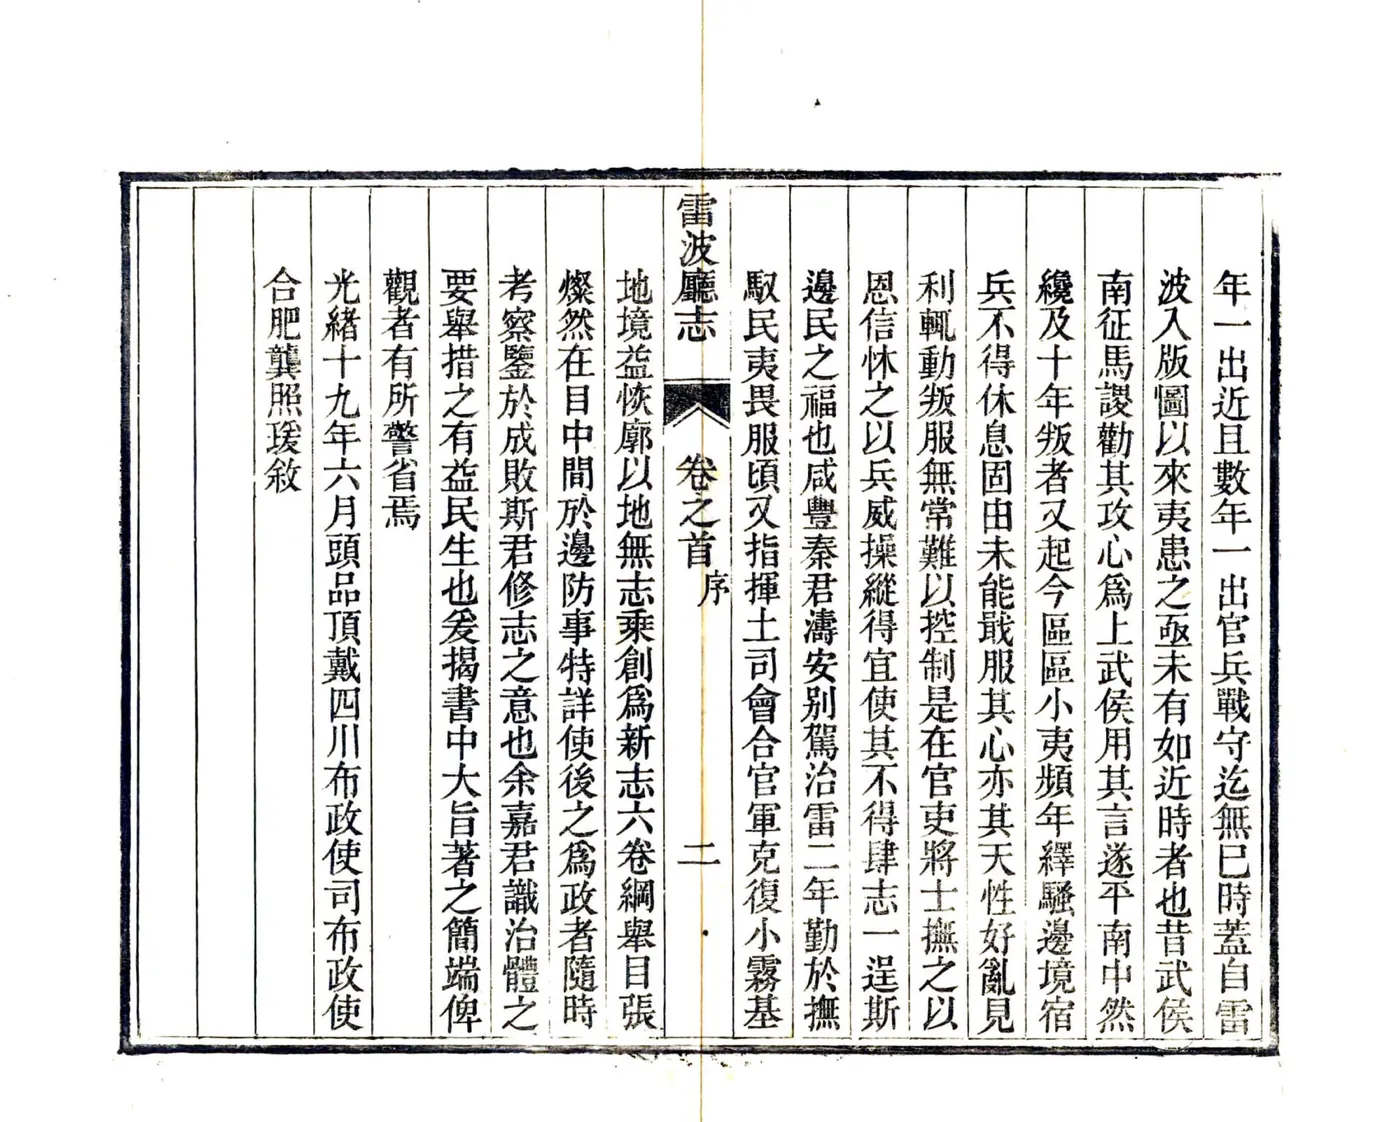 年一出近且數年一出官兵戰守迄無已時蓋自雷
波入版圖以來夷患之亟未有如近時者也昔武侯
南征馬謖勸其攻心爲上武侯用其言遂平南中然
纔及十年叛者又起今區區小夷頻年繹騷邊境宿
兵不得休息固由未能戢服其心亦其天性好亂見
利輒動叛服無常難以控制是在官吏將士撫之以
恩信怵之以兵威操縱得宜使其不得肆志一逞斯
邊民之福也咸豐秦君濤安別駕治雷二年勤於撫
馭民夷畏服頃又指揮土司會合官軍克復小霧基
雷波廳志
卷之首
序
二
地境益恢廓以地無志乘創爲新志六卷綱舉目張
燦然在目中間於邊防事特詳使後之爲政者隨時
考察鑒於成敗斯君修志之意也余嘉君識治體之
要舉措之有益民生也爰揭書中大旨著之簡端俾
觀者有所警省焉
光緒十九年六月頭品頂戴四川布政使司布政使
合肥龔照瑗敘